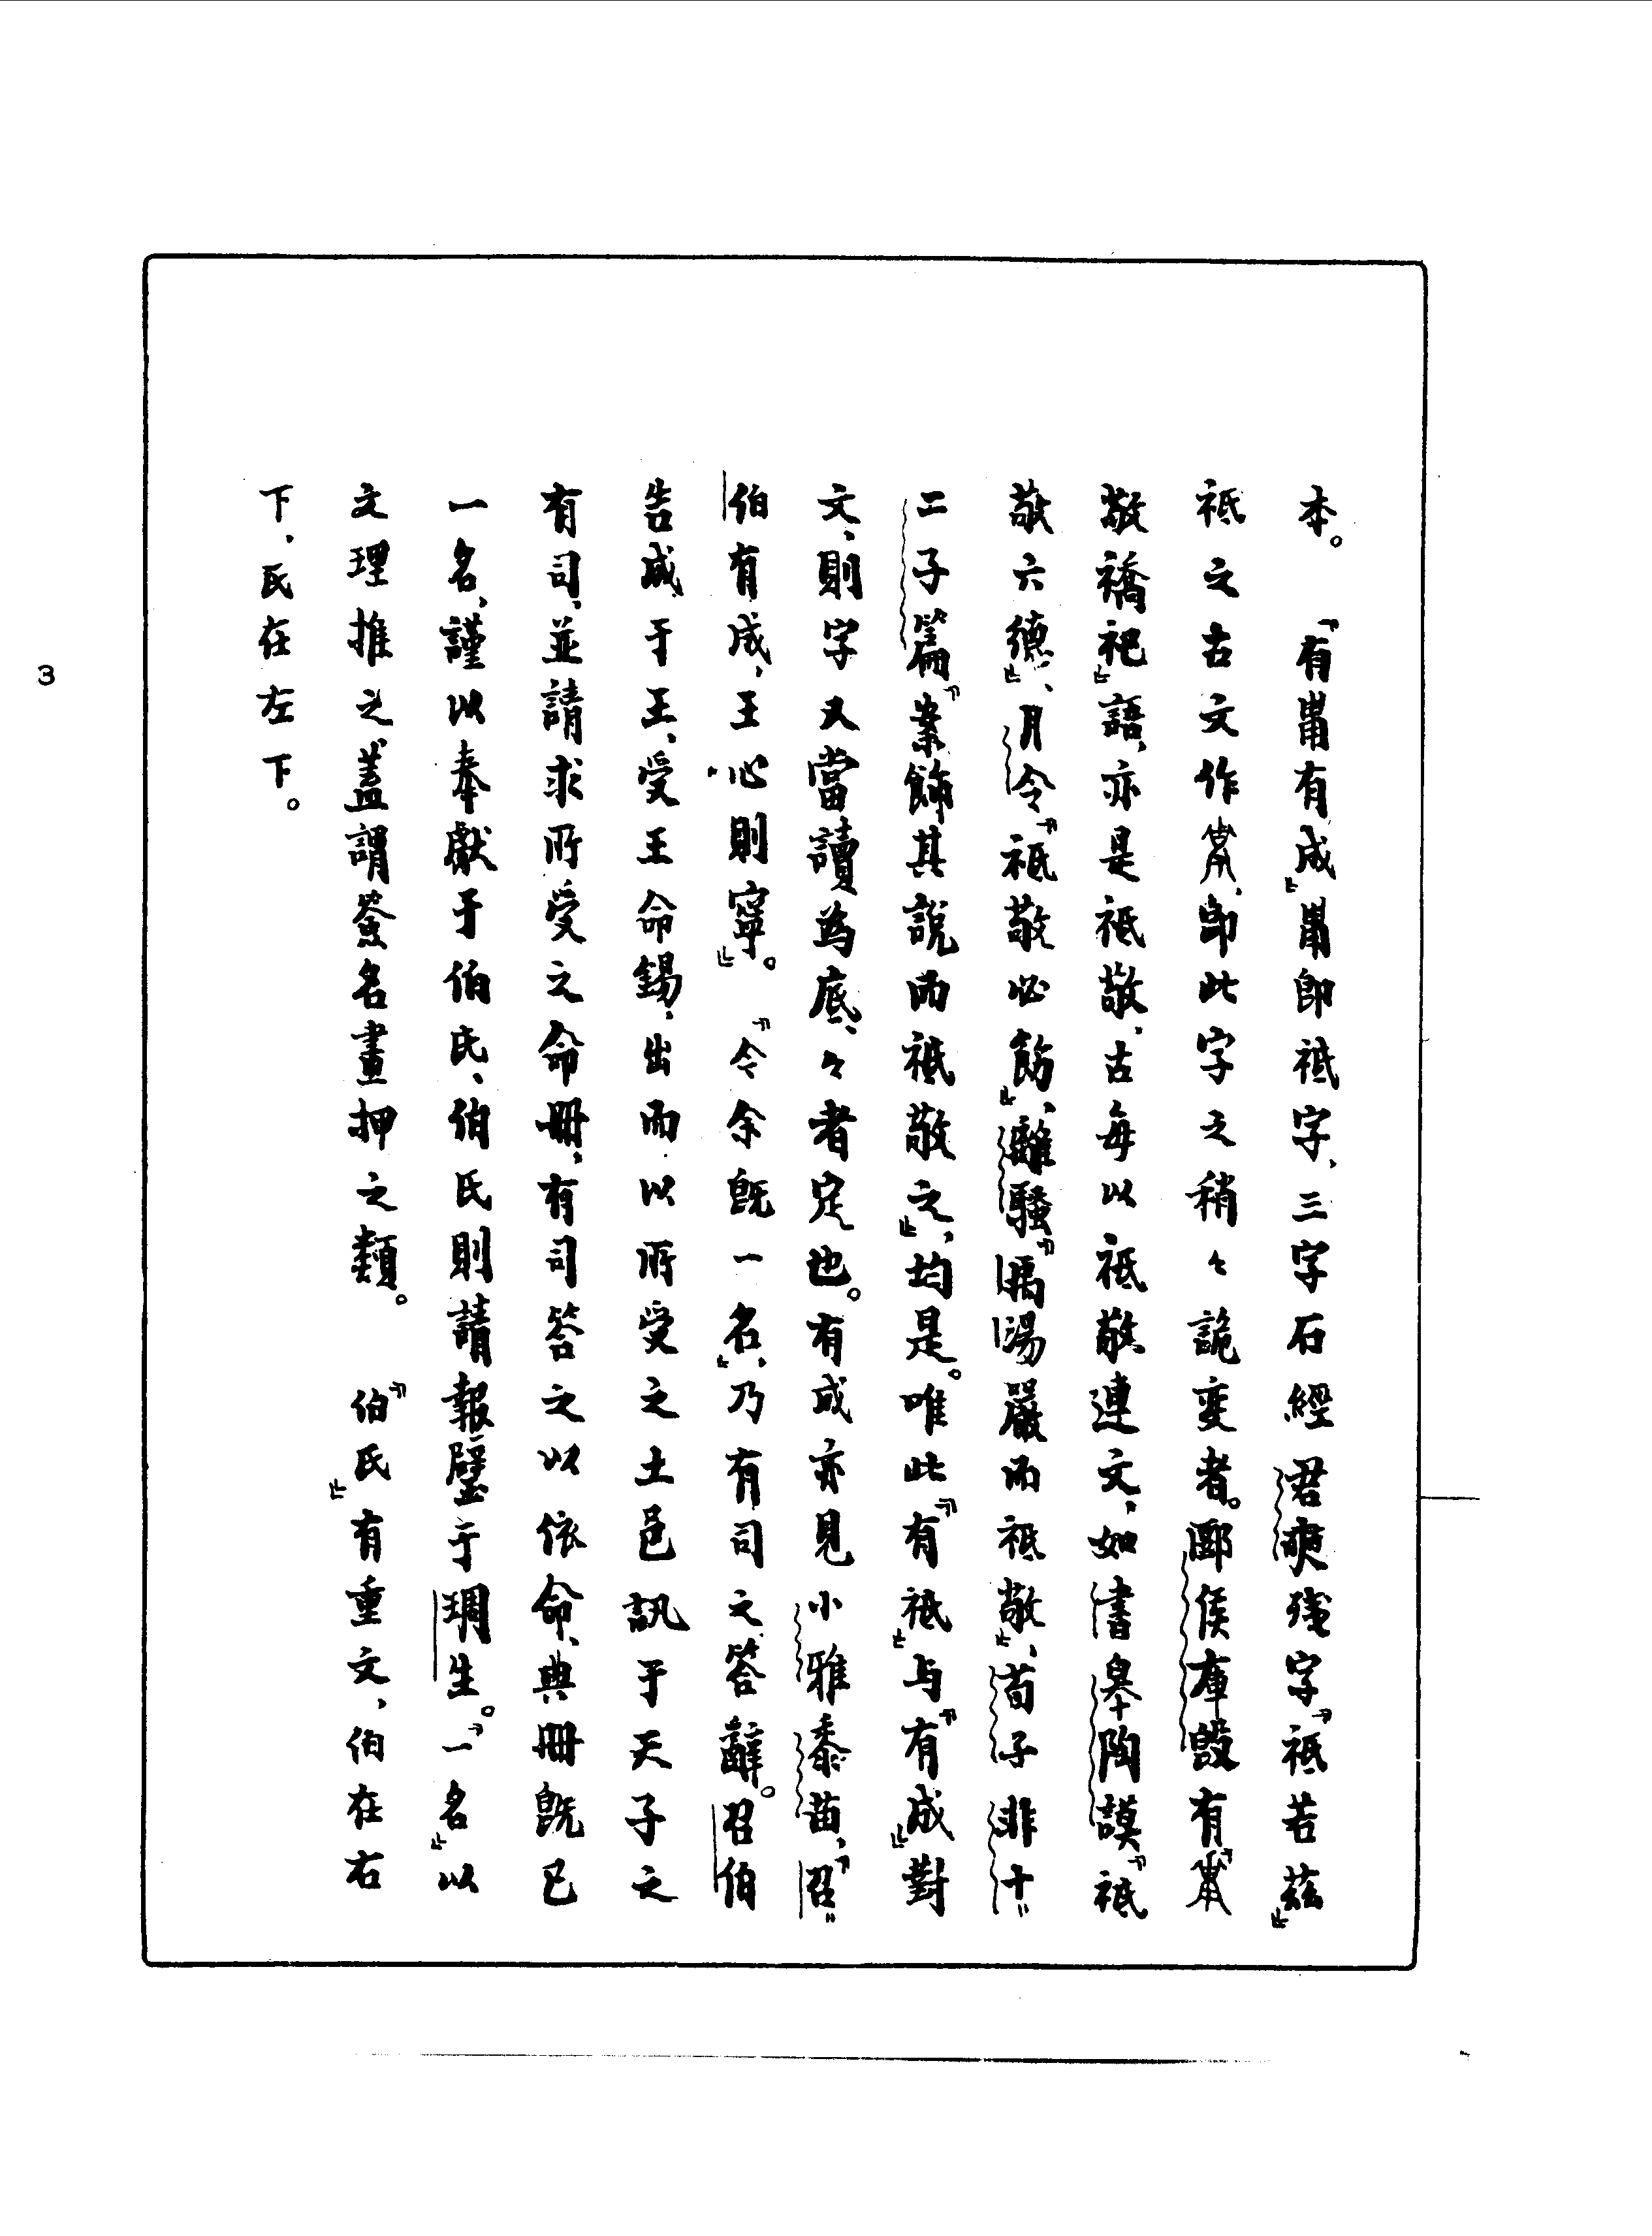 本。『有𤰇有成』𤰇即祗字、三字石經君奭殘字『祗若茲』
祗之古文作、即此字之稍々詭變者。郾侯庫𣪘有『
敬禱祀』語、亦是祗敬、古每以祗敬連文、如書皋陶謨『祗
敬六德』、月令『祗敬必飭』、離騷『禹湯嚴而祗敬』、荀子非十=
二子篇『案飾其說而祗敬之』、均是。唯此『有祗』与『有成』對
文、則字又當讀為底、々者定也。有成亦見小雅黍苗、『召=
伯有成、王心則寧』。『令余既一名』、乃有司之答辭。召伯
告成于王、受王命錫、出而以所受之土邑訊于天子之
有司、並請求所受之命冊、有司答之以依命、典冊既已
一名、謹以奉獻于伯氏、伯氏則請報璧于琱生。『一名』以
文理推之、蓋謂簽名畫押之類。『伯氏』有重文、伯在右
下、氏在左下。
3